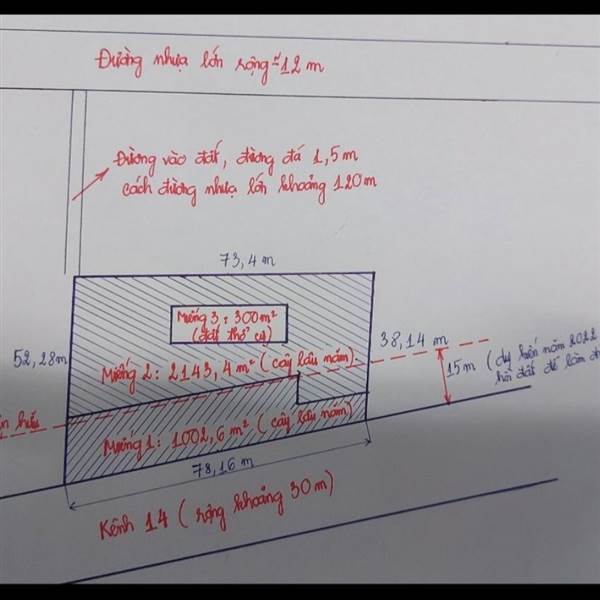 Đường nhựa lớn rộng ≈ 12 m
Đường vào đất, đường đá 1,5m
cách đường nhựa lớn khoảng 120m
73,4 m
Miếng 3: 300m²
(đất thổ cư)
38,14 m
52,28m
Miếng 2: 2143,4 m² (cây lâu năm)
15m (dự kiến năm 2022
hồi đất để làm
hữu
Miếng 1: 1002,6 m² (cây lâu năm)
78,16 m
Kênh 14 (rộng khoảng 30 m)